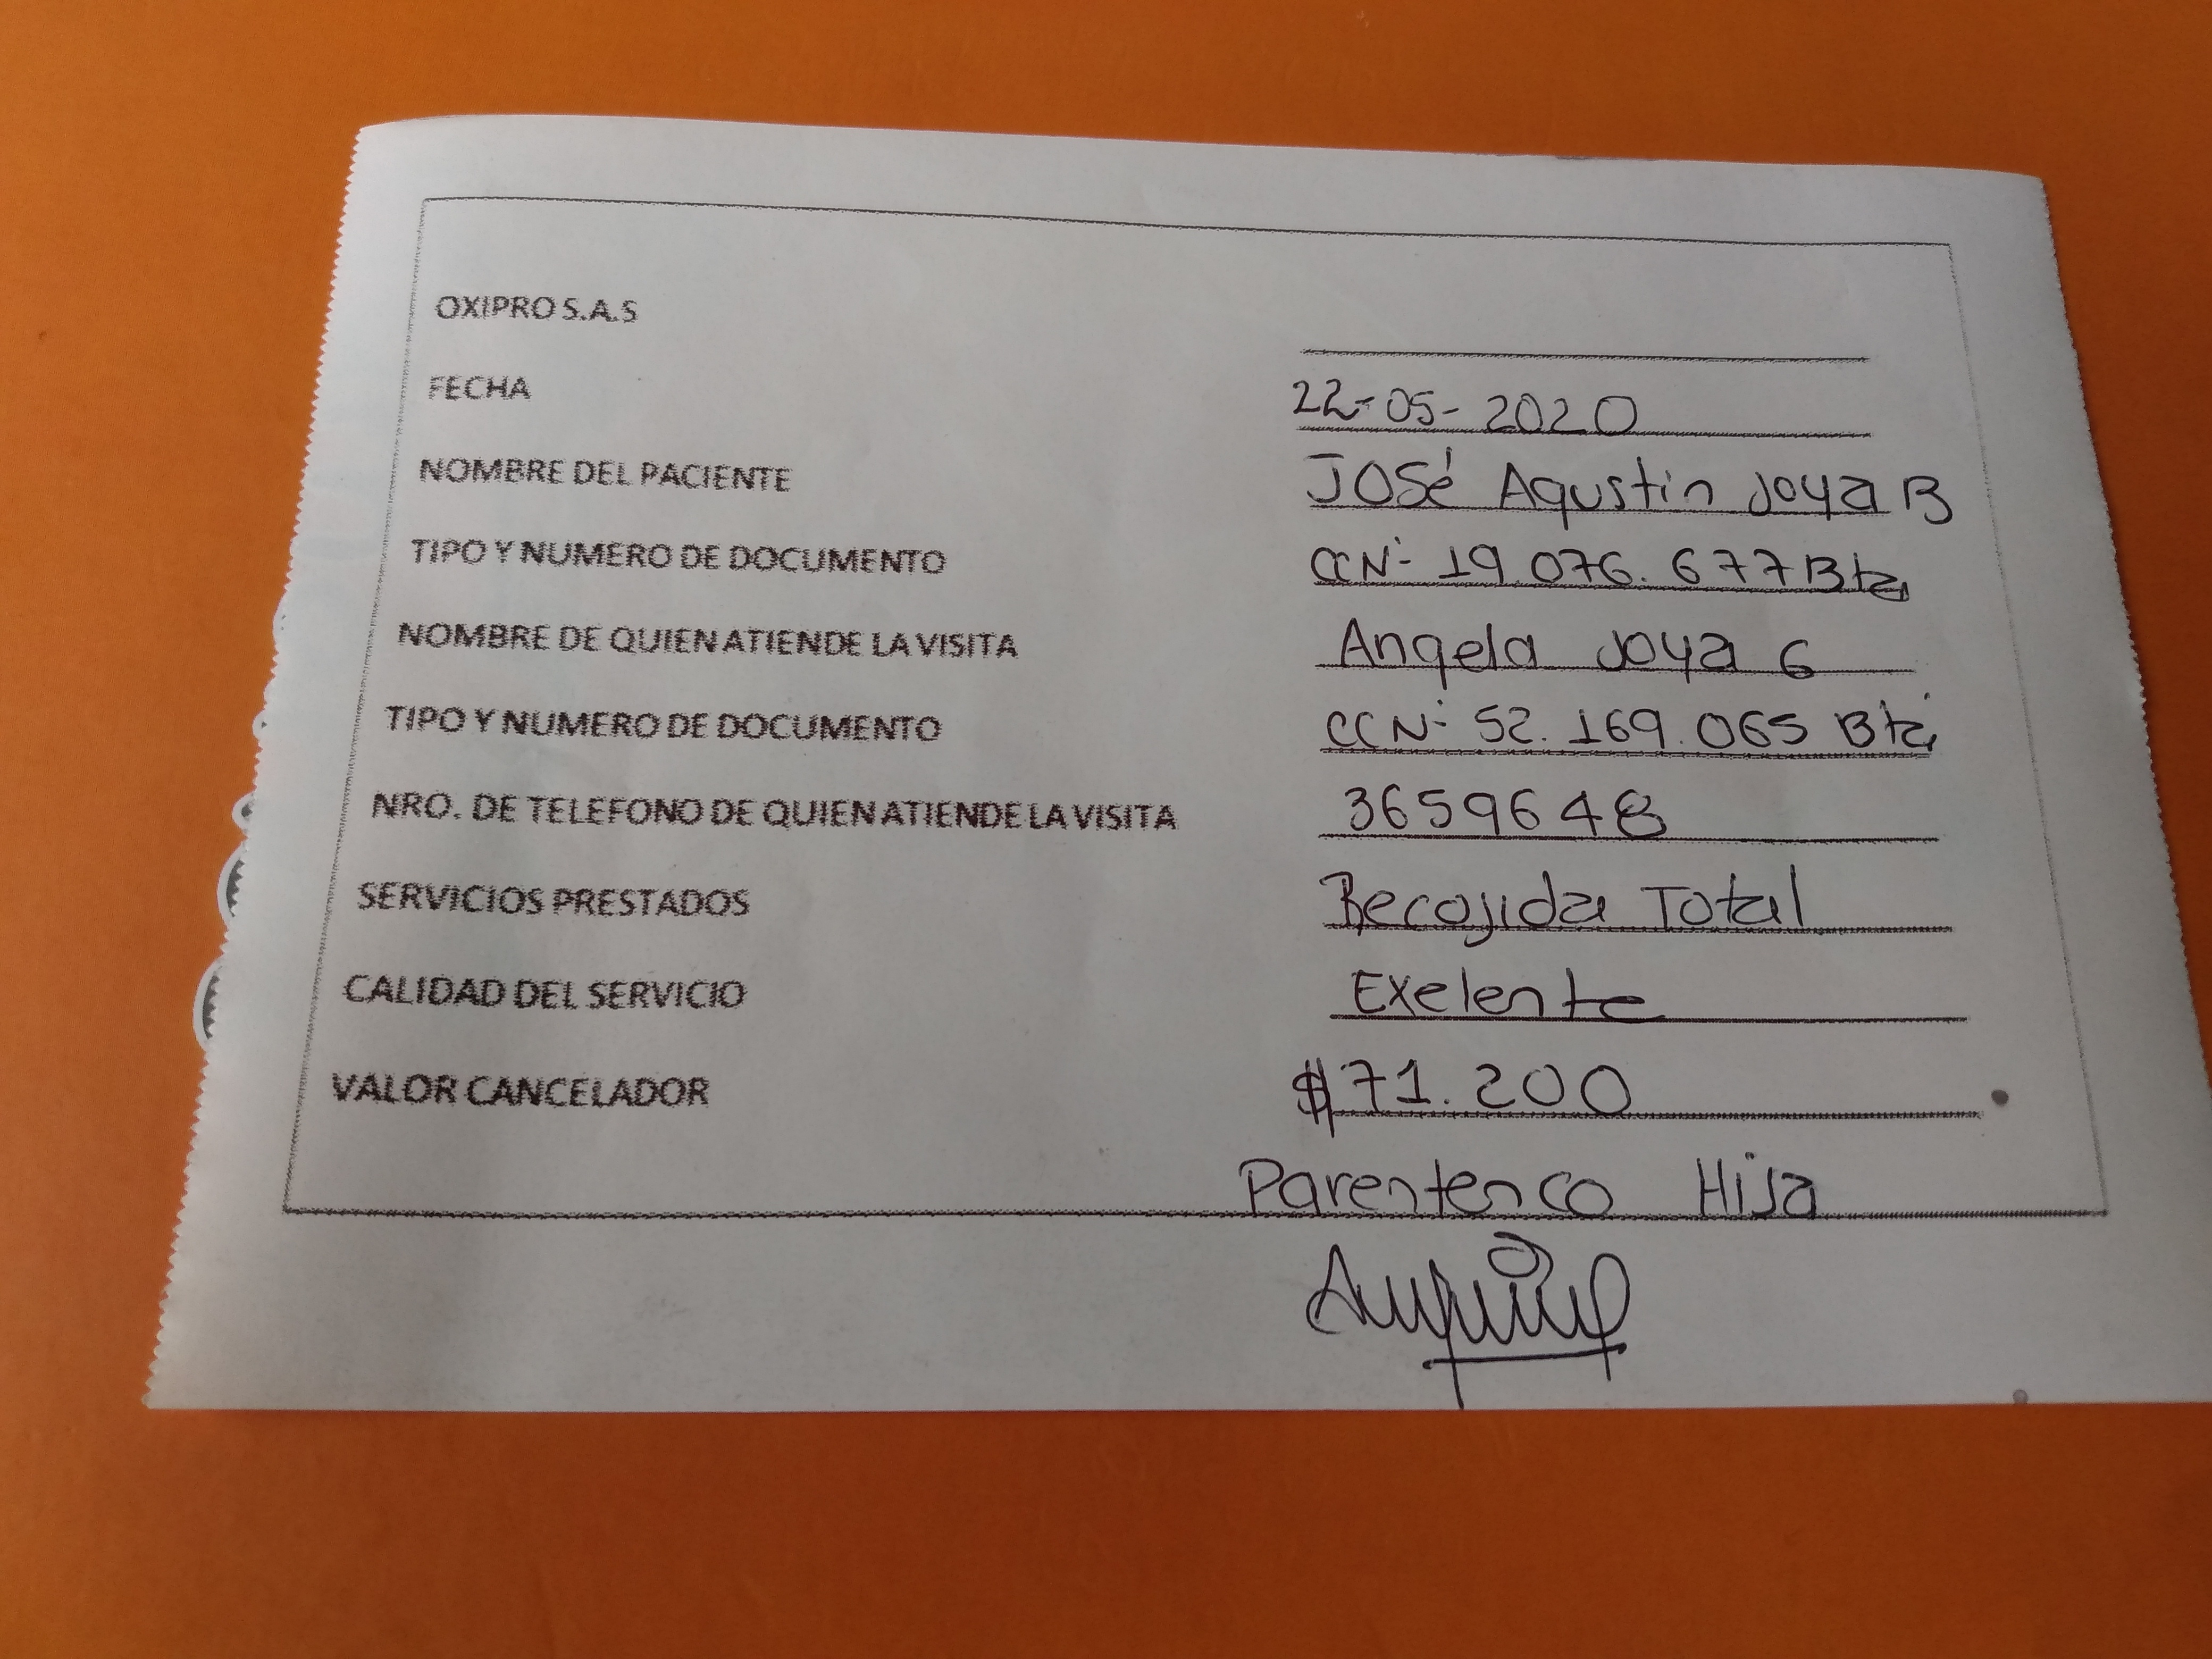 OXIPRO S.A.S
FECHA 22-05-2020
NOMBRE DEL PACIENTE JOSé Agustin Joya B
TIPO Y NUMERO DE DOCUMENTO CCN- 19.076.677 Bta
NOMBRE DE QUIEN ATIENDE LA VISITA Angela Joya G
TIPO Y NUMERO DE DOCUMENTO CCN- 52.169.065 Bta
NRO. DE TELEFONO DE QUIEN ATIENDE LA VISITA 3659648
SERVICIOS PRESTADOS Recojida Total
CALIDAD DEL SERVICIO Exelente
VALOR CANCELADOR $71.200
Parentenco Hija